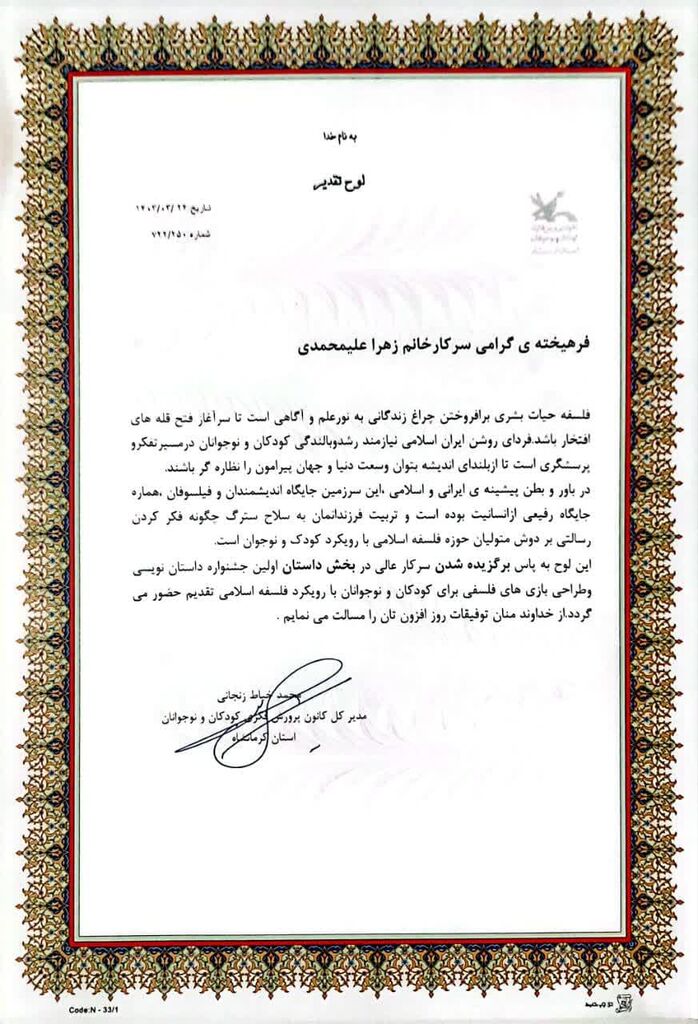 به نام خدا
لوح تقدیر
تاریخ ۱۴۰۳/۰۳/۲۴
شماره ۷۲۲/۲۵۰
فرهیخته ی گرامی سرکارخانم زهرا علیمحمدی
فلسفه حیات بشری برافروختن چراغ زندگانی به نورعلم و آگاهی است تا سرآغاز فتح قله های
افتخار باشد.فردای روشن ایران اسلامی نیازمند رشدوبالندگی کودکان و نوجوانان درمسیرتفکرو
پرسشگری است تا ازبلندای اندیشه بتوان وسعت دنیا و جهان پیرامون را نظاره گر باشند.
در باور و بطن پیشینه ی ایرانی و اسلامی ،این سرزمین جایگاه اندیشمندان و فیلسوفان ،هماره
جایگاه رفیعی ازانسانیت بوده است و تربیت فرزندانمان به سلاح سترگ چگونه فکر کردن
رسالتی بر دوش متولیان حوزه فلسفه اسلامی با رویکرد کودک و نوجوان است.
این لوح به پاس برگزیده شدن سرکار عالی در بخش داستان اولین جشنواره داستان نویسی
وطراحی بازی های فلسفی برای کودکان و نوجوانان با رویکرد فلسفه اسلامی تقدیم حضور می
گردد.از خداوند منان توفیقات روز افزون تان را مسالت می نمایم .
محمد خیاط زنجانی
مدیر کل کانون پرورش فکری کودکان و نوجوانان
استان کرمانشاه
Code:N - 33/1